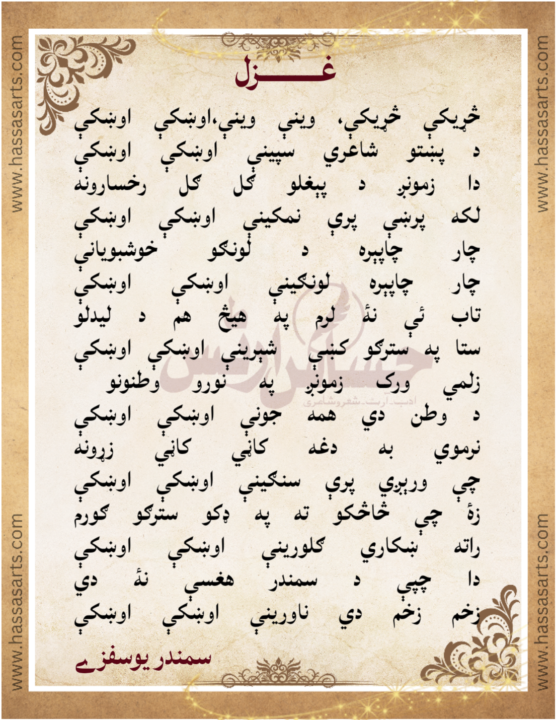 غــــزل
څړيکې څړيکې، وينې وينې،اوښکې اوښکې
د پښتو شاعري سپينې اوښکې اوښکې
دا زمونږ د پېغلو ګل ګل رخسارونه
لکه پرښې پرې نمکينې اوښکې اوښکې
چار چاپېره د لونګو خوشبويانې
چار چاپېره لونګينې اوښکې اوښکې
تاب ئې نۀ لرم په هيڅ هم د ليدلو
ستا په سترګو کښې شېرينې اوښکې اوښکې
زلمي ورک زمونږ په نورو وطنونو
د وطن دي همه جونې اوښکې اوښکې
نرموي به دغه کاڼي کاڼي زړونه
چې ورېږي پرې سنګينې اوښکې اوښکې
زۀ چې څاڅکو ته په ډکو سترګو ګورم
راته ښکاري ګلورينې اوښکې اوښکې
دا چپې د سمندر هغسې نۀ دي
زخم زخم دي ناورينې اوښکې اوښکې
سمندر يوسفزے
www.hassasarts.com
www.hassasarts.com
www.hassasarts.com
www.hassasarts.com
حساس آرٹس
ادب۔آرٹ۔شعروشاعری